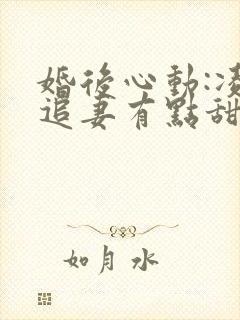 婚後心動:凌
追妻有點甜
如月水